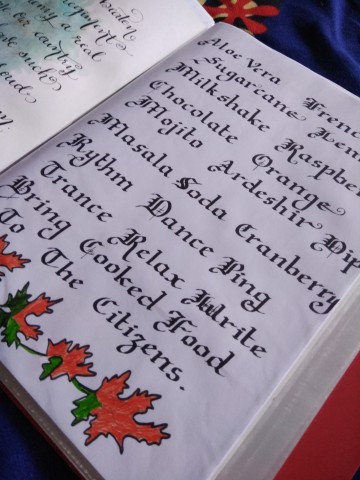 Aloe Vera Fren
Sugarcane Lem
Milkshake Raspbe
Chocolate Orange
Mojito Ardeshir Dip
Masala Soda Cranberry
Rythm Dance Ping
Trance Relax Write
Bring Cooked Food
To The Citizens.